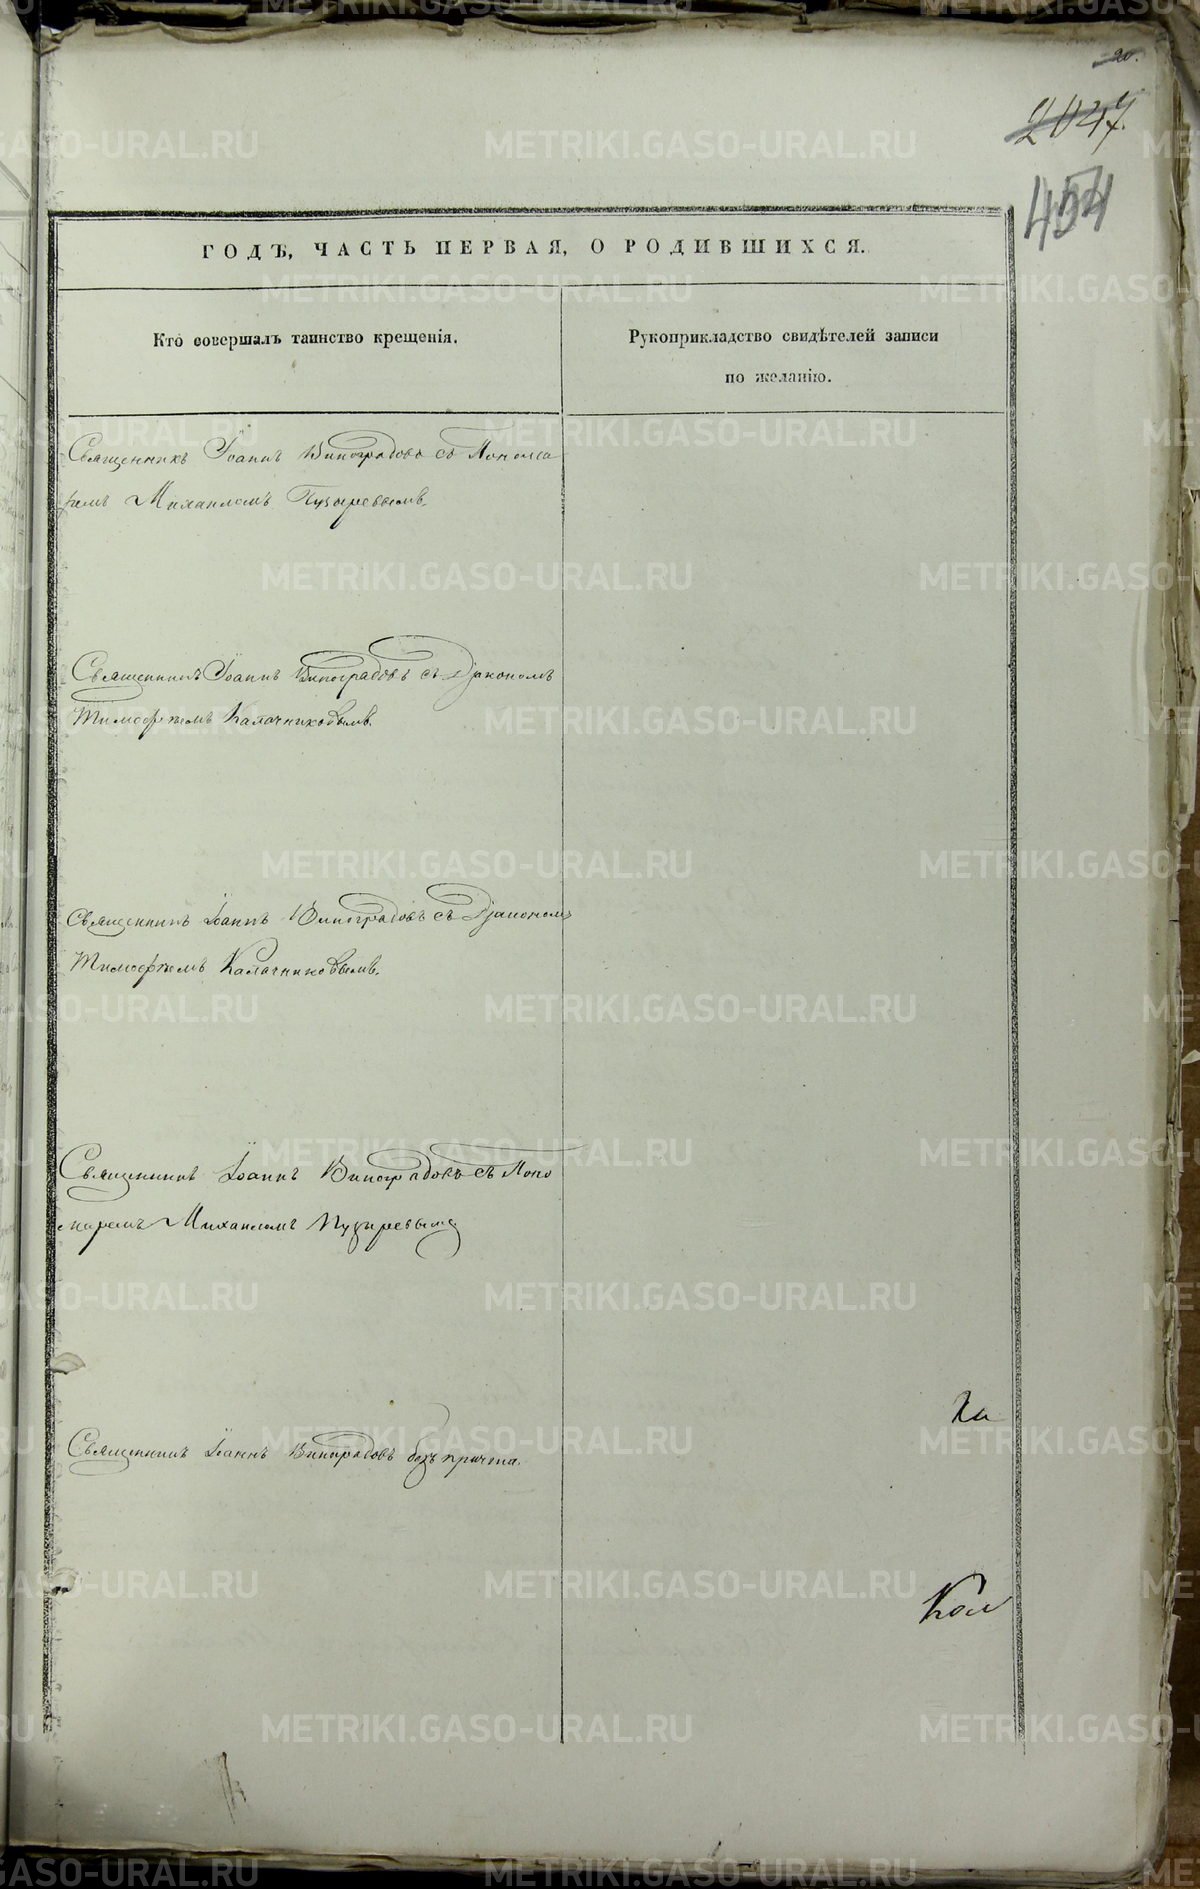 20.
2047.
454
ГОДЪ, ЧАСТЬ ПЕРВАЯ, О РОДИВШИХСЯ.
Кто совершалъ таинство крещенія.
Рукоприкладство свидѣтелей записи
по желанію.
Священникъ Іоаннъ Виноградовъ съ Понома
ремъ Михаиломъ Пузыревымъ.
Священникъ Іоаннъ Виноградовъ съ Діакономъ
Тимофѣемъ Калачниковымъ.
Священникъ Іоаннъ Виноградовъ съ Діакономъ
Тимофѣемъ Калачниковымъ.
Священникъ Іоаннъ Виноградовъ съ Поно
маремъ Михаиломъ Пузыревымъ
Священникъ Іоаннъ Виноградовъ безъ причта.
Ка
METRIKI.GASO-URAL.RU